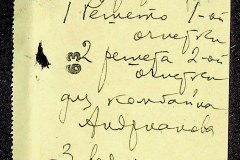 1 Решето 1-ой
очистки
63
2 решета 2-ой
очистки
для комбайна
Андрианова
3